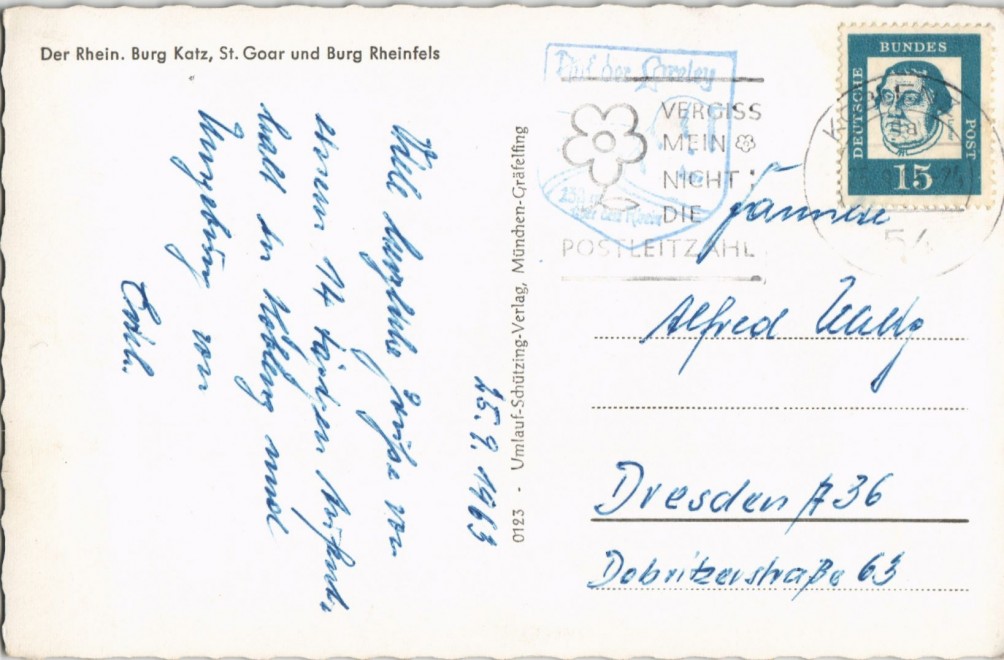 Der Rhein. Burg Katz, St. Goar und Burg Rheinfels
25.9.1963
Viele herzliche Grüße von
einem 14 tägigen Aufent-
halt in Koblenz und
Umgebung von
0123 - Umlauf-Schützing-Verlag, München-Gräfelfing
Auf der Loreley
über dem Rhein
VERGISS
MEIN
NICHT
DIE
POSTLEITZAHL
DEUTSCHE
BUNDES
POST
15
54
Familie
Alfred
Dresden A 36
Dobritzerstraße 63